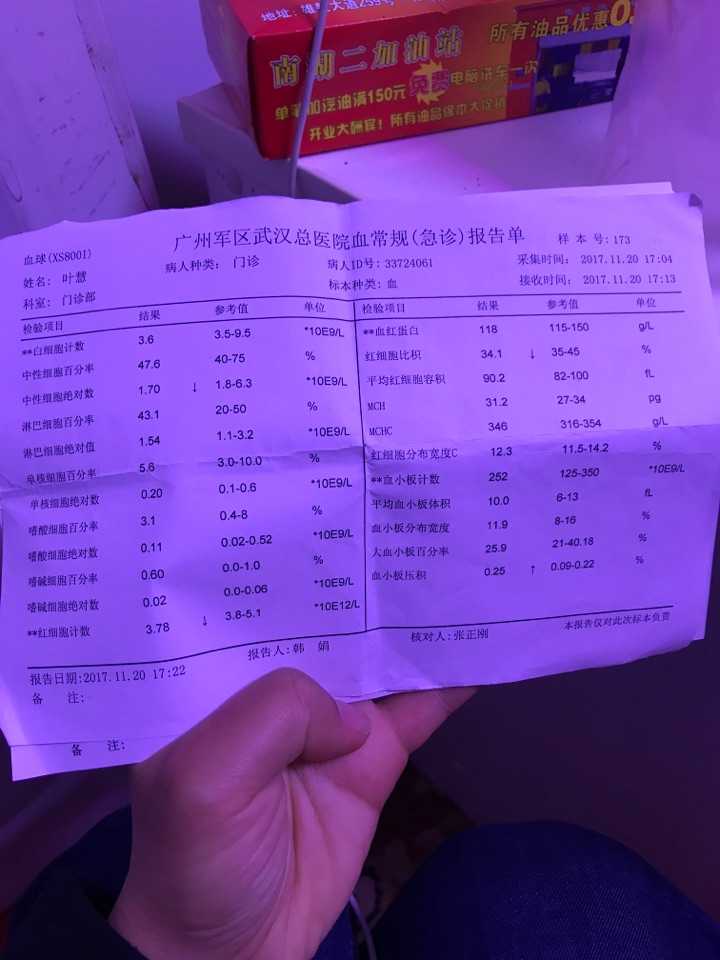 地址：雄楚大道259号
南湖二加油站
所有油品优惠0.
单笔加汽油满150元免费电脑洗车一次
开业大酬宾！所有油品保本大促销
广州军区武汉总医院血常规(急诊)报告单
血球(XS800I)
样 本 号: 173
姓名: 叶慧
病人种类: 门诊
病人ID号: 33724061
采集时间: 2017.11.20 17:04
科室: 门诊部
标本种类: 血
接收时间: 2017.11.20 17:13
检验项目 结果 参考值 单位
**白细胞计数 3.6 3.5-9.5 *10E9/L
中性细胞百分率 47.6 40-75 %
中性细胞绝对数 1.70 ↓ 1.8-6.3 *10E9/L
淋巴细胞百分率 43.1 20-50 %
淋巴细胞绝对值 1.54 1.1-3.2 *10E9/L
单核细胞百分率 5.6 3.0-10.0 %
单核细胞绝对数 0.20 0.1-0.6 *10E9/L
嗜酸细胞百分率 3.1 0.4-8 %
嗜酸细胞绝对数 0.11 0.02-0.52 *10E9/L
嗜碱细胞百分率 0.60 0.0-1.0 %
嗜碱细胞绝对数 0.02 0.0-0.06 *10E9/L
**红细胞计数 3.78 ↓ 3.8-5.1 *10E12/L
检验项目 结果 参考值 单位
**血红蛋白 118 115-150 g/L
红细胞比积 34.1 ↓ 35-45 %
平均红细胞容积 90.2 82-100 fL
MCH 31.2 27-34 pg
MCHC 346 316-354 g/L
红细胞分布宽度C 12.3 11.5-14.2 %
**血小板计数 252 125-350 *10E9/L
平均血小板体积 10.0 6-13 fL
血小板分布宽度 11.9 8-16 %
大血小板百分率 25.9 21-40.18 %
血小板压积 0.25 ↑ 0.09-0.22 %
报告日期:2017.11.20 17:22
报告人:韩 娟
核对人:张正刚
本报告仅对此次标本负责
备 注:
备 注: